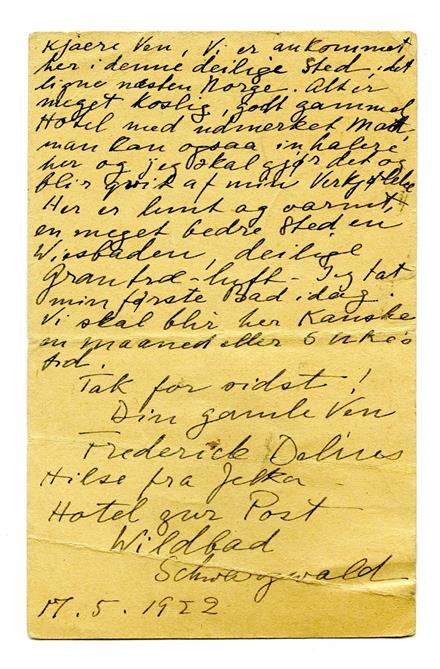 Kjaere Ven, Vi er ankommet
her i denne deilige Sted, det
ligne næsten Norge. Alt er
meget koslig, godt gammel
Hotel med udmerket Mad,
man kan ogsaa inhalere
her og jeg skal gjør det og
blir qvit af min
Her er lunt og varmt,
en meget bedre Sted en
Wiesbaden, deilige
Grantræ-luft - Jeg tat
min første Bad idag.
Vi skal blir her Kanske
en maaned eller 6 Uke's
tid.
Tak for sidst!
Din gamle Ven
Frederick Delius
Hilse fra Jelka
Hotel zur Post
Wildbad
Schwarzwald
17.5.1922